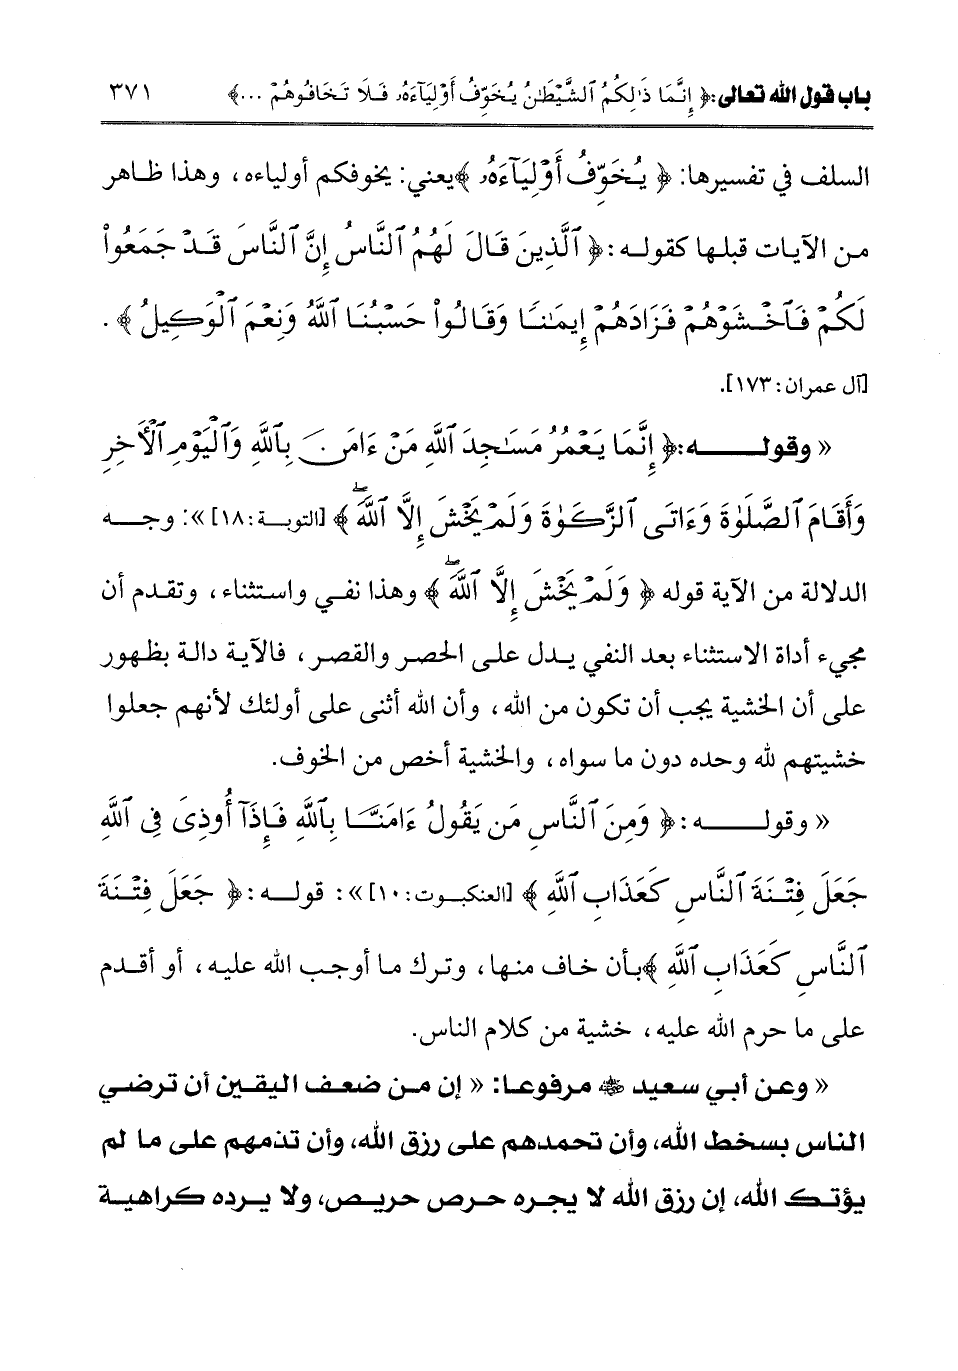 باب قول الله تعالى: ﴿ إِنَّمَا ذَٰلِكُمُ ٱلشَّيْطَٰنُ يُخَوِّفُ أَوْلِيَآءَهُۥ فَلَا تَخَافُوهُمْ ...﴾ ٣٧١
السلف في تفسيرها: ﴿ يُخَوِّفُ أَوْلِيَآءَهُۥ ﴾ يعني: يخوفكم أولياءه، وهذا ظاهر
من الآيات قبلها كقوله: ﴿ ٱلَّذِينَ قَالَ لَهُمُ ٱلنَّاسُ إِنَّ ٱلنَّاسَ قَدْ جَمَعُوا۟
لَكُمْ فَٱخْشَوْهُمْ فَزَادَهُمْ إِيمَٰنًا وَقَالُوا۟ حَسْبُنَا ٱللَّهُ وَنِعْمَ ٱلْوَكِيلُ ﴾.
[آل عمران: ١٧٣].
« وقوله: ﴿ إِنَّمَا يَعْمُرُ مَسَٰجِدَ ٱللَّهِ مَنْ ءَامَنَ بِٱللَّهِ وَٱلْيَوْمِ ٱلْأَخِرِ
وَأَقَامَ ٱلصَّلَوٰةَ وَءَاتَى ٱلزَّكَوٰةَ وَلَمْ يَخْشَ إِلَّا ٱللَّهَ ۖ ﴾ [التوبة: ١٨] »: وجه
الدلالة من الآية قوله ﴿ وَلَمْ يَخْشَ إِلَّا ٱللَّهَ ۖ ﴾ وهذا نفي واستثناء، وتقدم أن
مجيء أداة الاستثناء بعد النفي يدل على الحصر والقصر، فالآية دالة بظهور
على أن الخشية يجب أن تكون من الله، وأن الله أثنى على أولئك لأنهم جعلوا
خشيتهم لله وحده دون ما سواه، والخشية أخص من الخوف.
« وقوله: ﴿ وَمِنَ ٱلنَّاسِ مَن يَقُولُ ءَامَنَّا بِٱللَّهِ فَإِذَآ أُوذِىَ فِى ٱللَّهِ
جَعَلَ فِتْنَةَ ٱلنَّاسِ كَعَذَابِ ٱللَّهِ ﴾ [العنكبوت: ١٠] »: قوله: ﴿ جَعَلَ فِتْنَةَ
ٱلنَّاسِ كَعَذَابِ ٱللَّهِ ﴾ بأن خاف منها، وترك ما أوجب الله عليه، أو أقدم
على ما حرم الله عليه، خشية من كلام الناس.
« وعن أبي سعيد ﷺ مرفوعا: « إن من ضعف اليقين أن ترضي
الناس بسخط الله، وأن تحمدهم على رزق الله، وأن تذمهم على ما لم
يؤتك الله، إن رزق الله لا يجره حرص حريص، ولا يرده كراهية